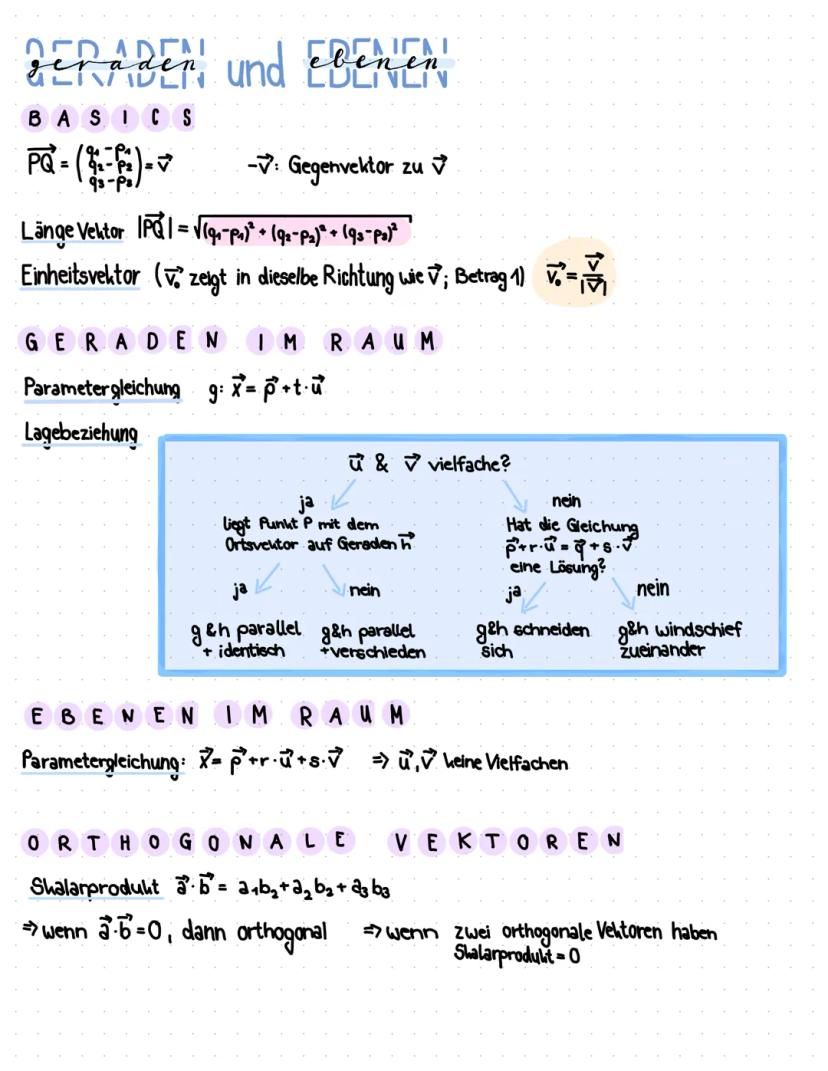 GERADEN geraden und EBENEN ebenen
BASICS
PQ⃗ = (q₁-p₁ q₂-p₂ q₃-p₃) = v⃗ -v⃗: Gegenvektor zu v⃗
Länge Vektor |PQ⃗| = √(q₁-p₁)² + (q₂-p₂)² + (q₃-p₃)²
Einheitsvektor (v₀⃗ zeigt in dieselbe Richtung wie v⃗; Betrag 1) v₀⃗ = v⃗/|v⃗|
GERADEN IM RAUM
Parametergleichung g: x⃗ = p⃗ + t·u⃗
Lagebeziehung
u⃗ & v⃗ vielfache?
ja nein
liegt Punkt P mit dem Hat die Gleichung
Ortsvektor auf Geraden h⃗ p⃗+r·u⃗ = q⃗+s·v⃗
eine Lösung?
ja nein ja nein
g&h parallel g&h parallel g&h schneiden g&h windschief
+ identisch +verschieden sich zueinander
EBENEN IM RAUM
Parametergleichung: x⃗ = p⃗+r·u⃗+s·v⃗ ⇒ u⃗,v⃗ keine Vielfachen
ORTHOGONALE VEKTOREN
Skalarprodukt a⃗·b⃗ = a₁b₂+a₂b₂+a₃b₃
⇒ wenn a⃗·b⃗=0, dann orthogonal ⇒ wenn zwei orthogonale Vektoren haben
Skalarprodukt = 0